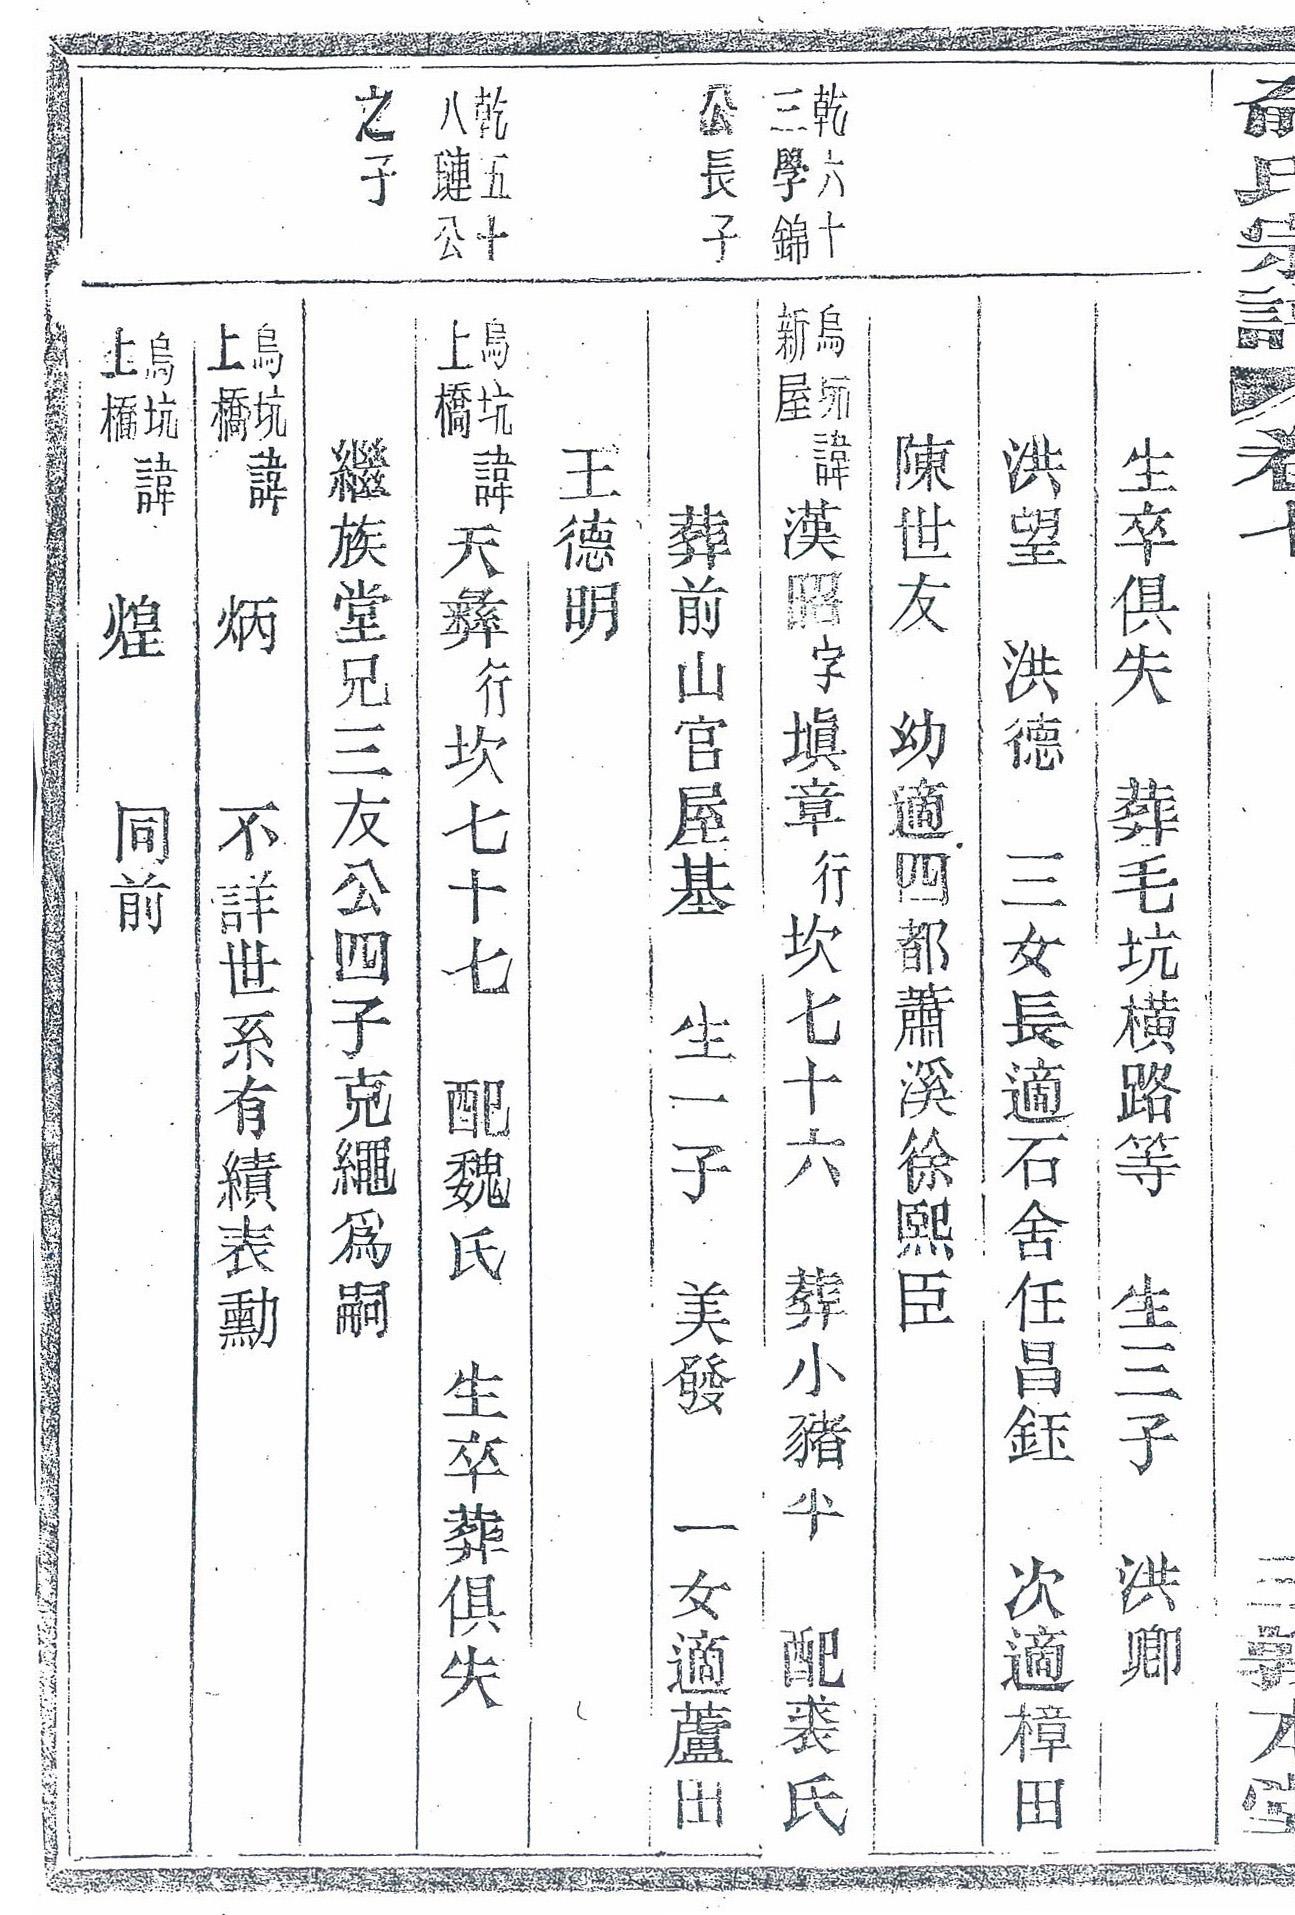 俞氏宗譜 卷十 三 敦本堂
生卒俱失 葬毛坑橫路等 生三子 洪卿
洪望 洪德 三女長適石舍任昌鈺 次適樟田
陳世友 幼適四都蕭溪徐熙臣
乾六十
三學錦
公長子
烏坑
新屋
諱漢昭字填章行坎七十六 葬小豬半 配裘氏
葬前山官屋基 生一子 美發 一女適蘆田
王德明
乾五十
八璉公
之子
烏坑
上橋
諱天彝行坎七十七 配魏氏 生卒葬俱失
繼族堂兄三友公四子克繩爲嗣
烏坑
上橋
諱 炳 不詳世系有績表勳
烏坑
上橋
諱 煌 同前